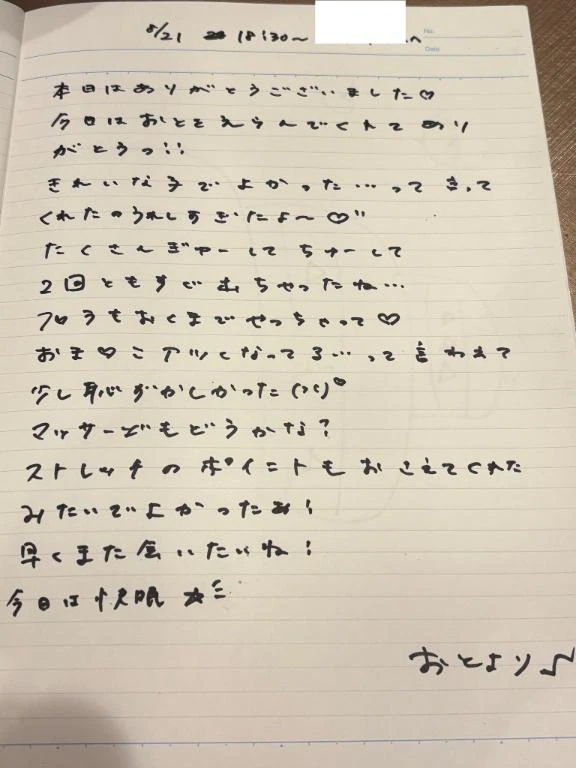 8/21 18:30～
No.
Date
本日はありがとうございました♡
今日はおとをえらんでくれてあり
がとうっ!!
きれいな子でよかった…って言って
くれたのうれしすぎたよ～♡"
たくさんぎゅーしてちゅーして
2回ともすぐむちゃったね…
フロうもおくまでせっちゃって♡
おま♡こアツくなってる…って言われて
少し恥ずかしかった(><)♡
マッサージもどうかな?
ストレッチのポイントもおさえてくれた
みたいでよかったぁ!
早くまた会いたいね!
今日は快眠☆彡
おとより